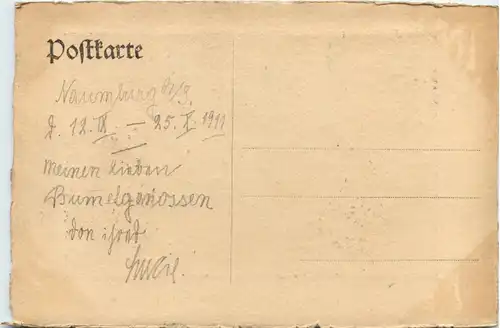 Postkarte
Naumburg a/S.
d. 12. IX. – 25. X. 1911
meinen lieben
Bum̅elgenossen
von ihrer